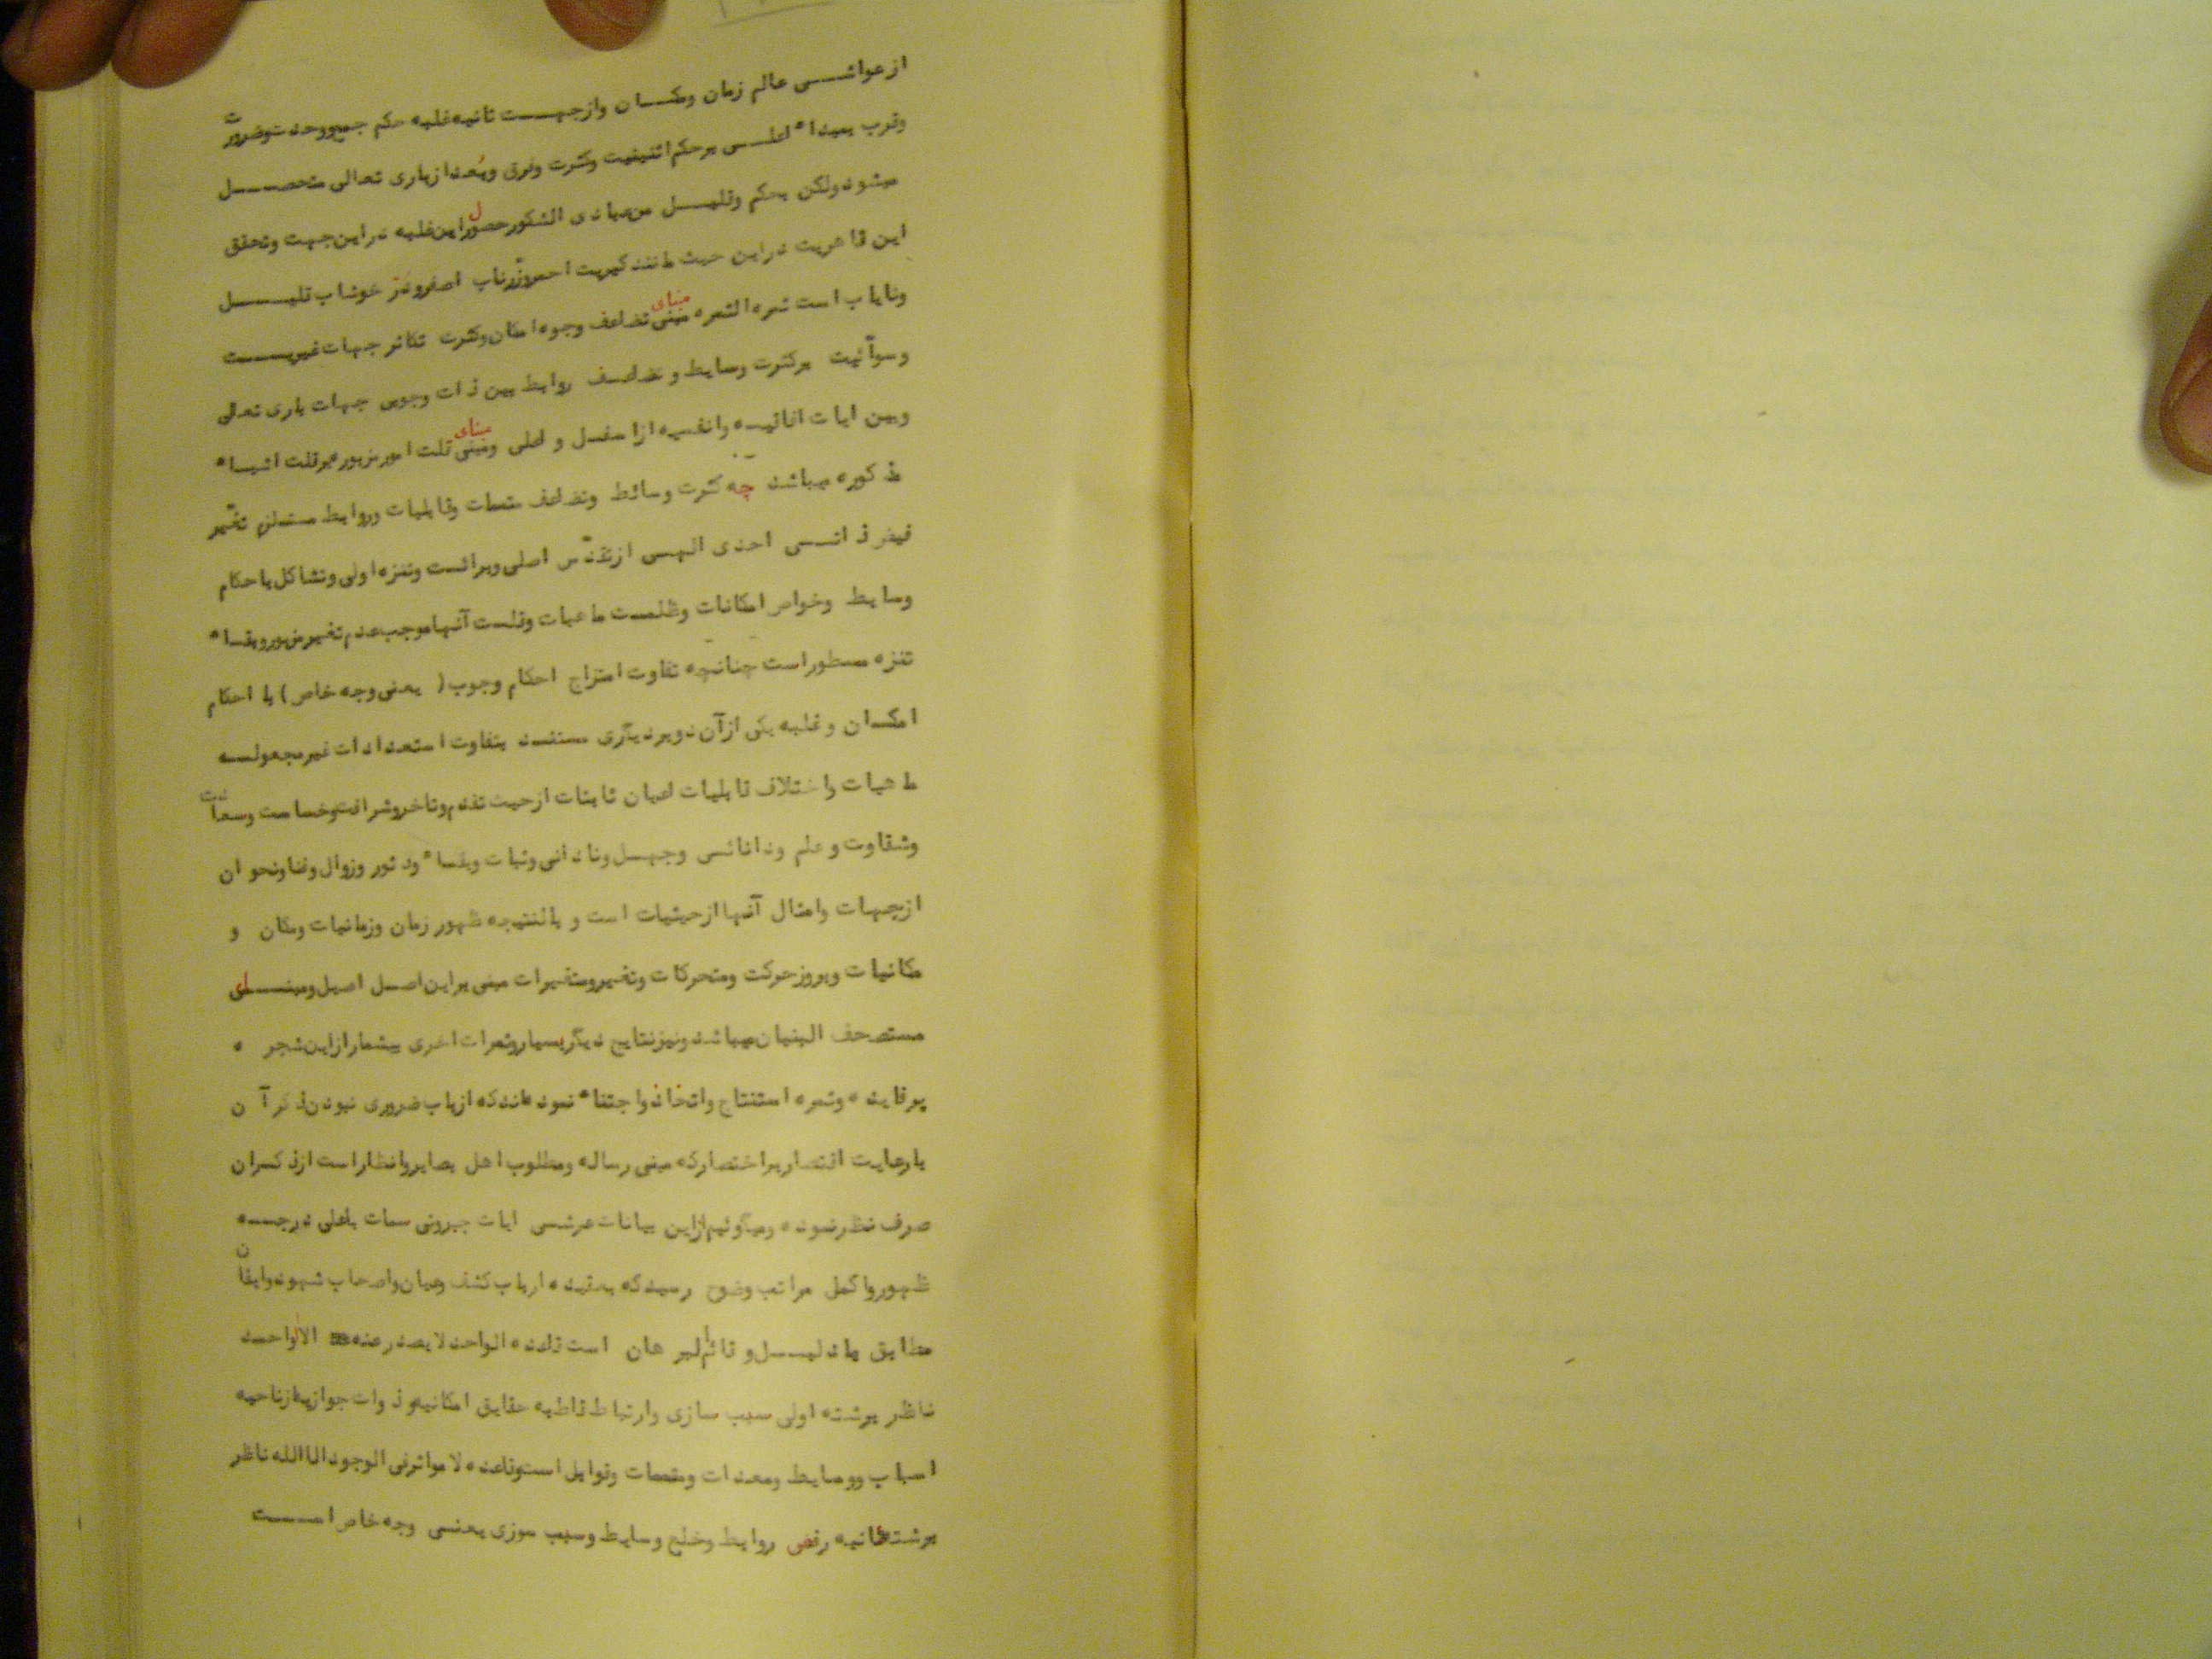 از عواشی عالم زمان ومکان وازجهت ثانیه غلبه حکم جمع ووحدت وضرورت
وقرب بمبداء اعلی برحکم اثنینیت وکثرت وفرق وبُعد ازباری تعالی متحصل
میشود ولکن بحکم وقلیل من عبادی الشکور حصول این غلبه در این جهت وتحقق
این قاهریت در این حیث مانند کبریت احمر وزرناب اصفر ودُرّ خوشاب قلیل
ونایاب است ثمره الثمره مبنی مبنای تضاعف وجوه امکان وکثرت تکاثر جهات غیریت
وسوآئیت برکثرت وسایط و تضاعف روابط بین ذات وجوبی جهات باری تعالی
وبین ایات افاقیه وانفسیه از اسفل و اعلی ومبنی مبنای قلت امور مزبوره برقلت اشیاء
مذکوره میباشد چه کثرت وسائط وتضاعف متممات وقابلیات وروابط مستلزم تغیّر
فیض ذاتی احدی الهی از تقدّس اصلی وبرائت وتنزه اولی وتشاکل باحکام
وسایط وخواص امکانات وظلمت ماهیات وقلت آنها موجب عدم تغییر مزبور وبقاء
تنزه مسطور است چنانچه تفاوت امتزاج احکام وجوب ( یعنی وجه خاص ) با احکام
امکان وغلبه یکی از آن دو بر دیگری مستند بتفاوت استعدادات غیر مجعوله
ماهیات واختلاف قابلیات اعیان ثابتات ازحیث تقدم وتاخر وشرافت وخساست وسعادت
وشقاوت وعلم ودانائی وجهل ونادانی وثبات وبقاء ودثور وزوال وفنا ونحو ان
ازجهات وامثال آنها از حیثیات است و بالنتیجه ظهور زمان وزمانیات ومکان و
مکانیات وبروز حرکت ومتحرکات وتغییر ومتغیرات مبنی براین اصل اصیل ومبنای
مستصحف البنیان میباشد ونیز نتایج دیگر بسیار وثمرات اخری بیشمار از این شجره
پرفایده وثمره استنتاج واتخاذ واجتناء نموده اند که ازباب ضروری نبودن ذکر آن
بارعایت اقتصار براختصار که مبنی رساله ومطلوب اهل بصایر وانظار است از ذکر ان
صرف نظر نموده ومیگوئیم از این بیانات عرشی ایات جبروتی سمات باعلی درجه
ظهور واکمل مراتب وضوح رسید که بعقیده ارباب کشف وعیان واصحاب شهود وایقان
مطابق با دلیل و قائم البرهان است قاعده الواحد لایصدر عنه الا الواحد
ناظر برشته اولی سبب سازی وارتباط قاطبه حقایق امکانیه وذوات جوازیه از ناحیه
اسباب ووسایط ومعدات ومتممات وقوابل است وقاعده لامواثر فی الوجود الا الله ناظر
برشته ثانیه رفض روابط وخلع وسایط وسبب سوزی یعنی وجه خاص است